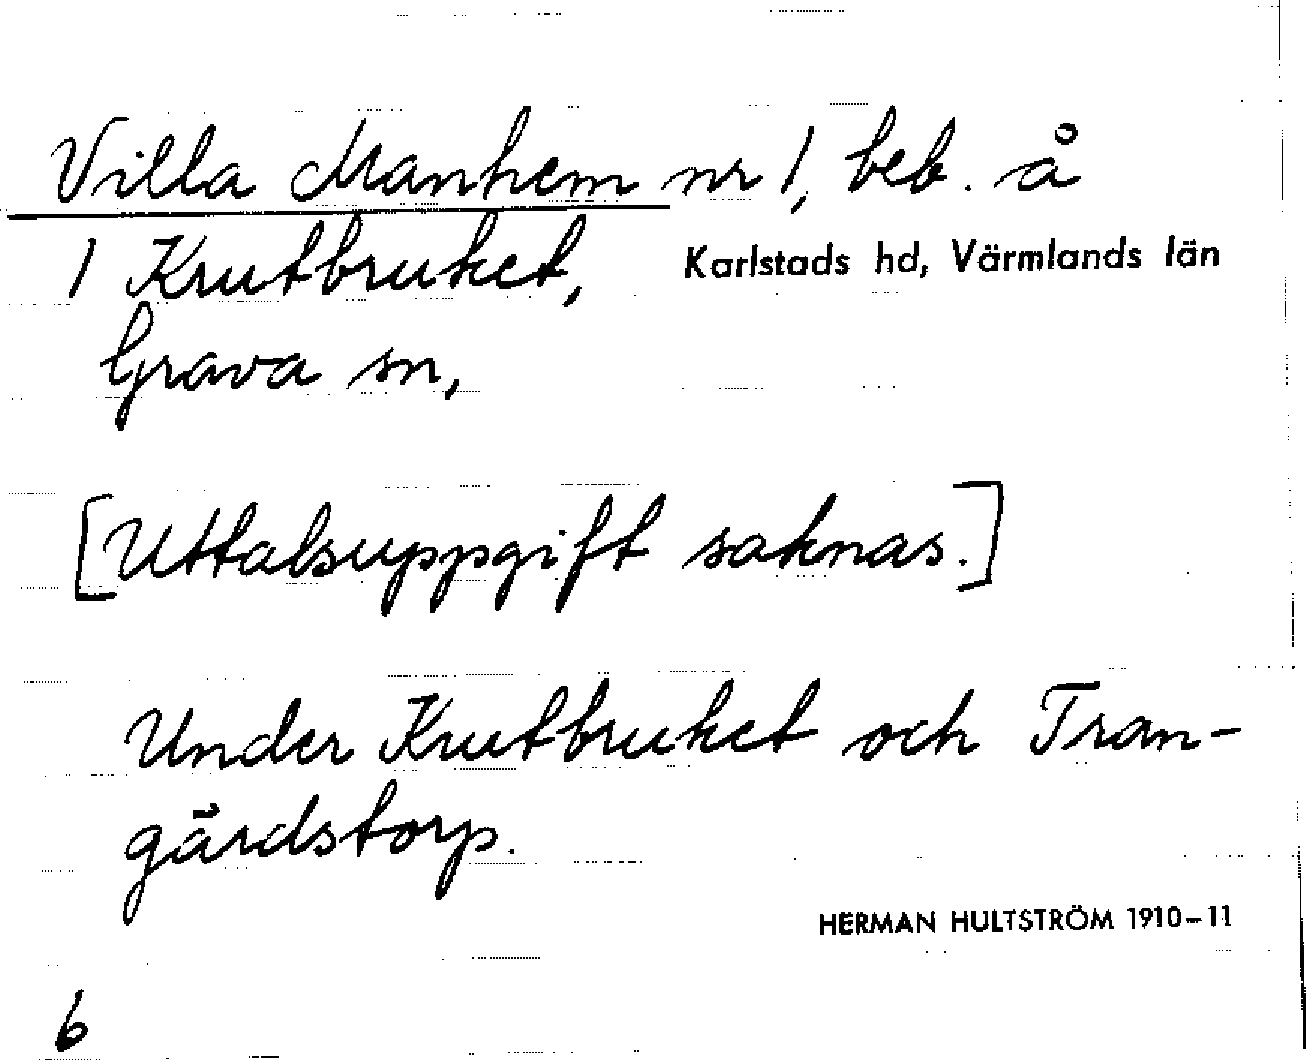 Villa Manhem nr 1, beb. å
1 Krutbruket, Karlstads hd, Värmlands län
Grava sn,
[Uttalsuppgift saknas.]
Under Krutbruket och Tran-
gärdstorp.
HERMAN HULTSTRÖM 1910-11
6